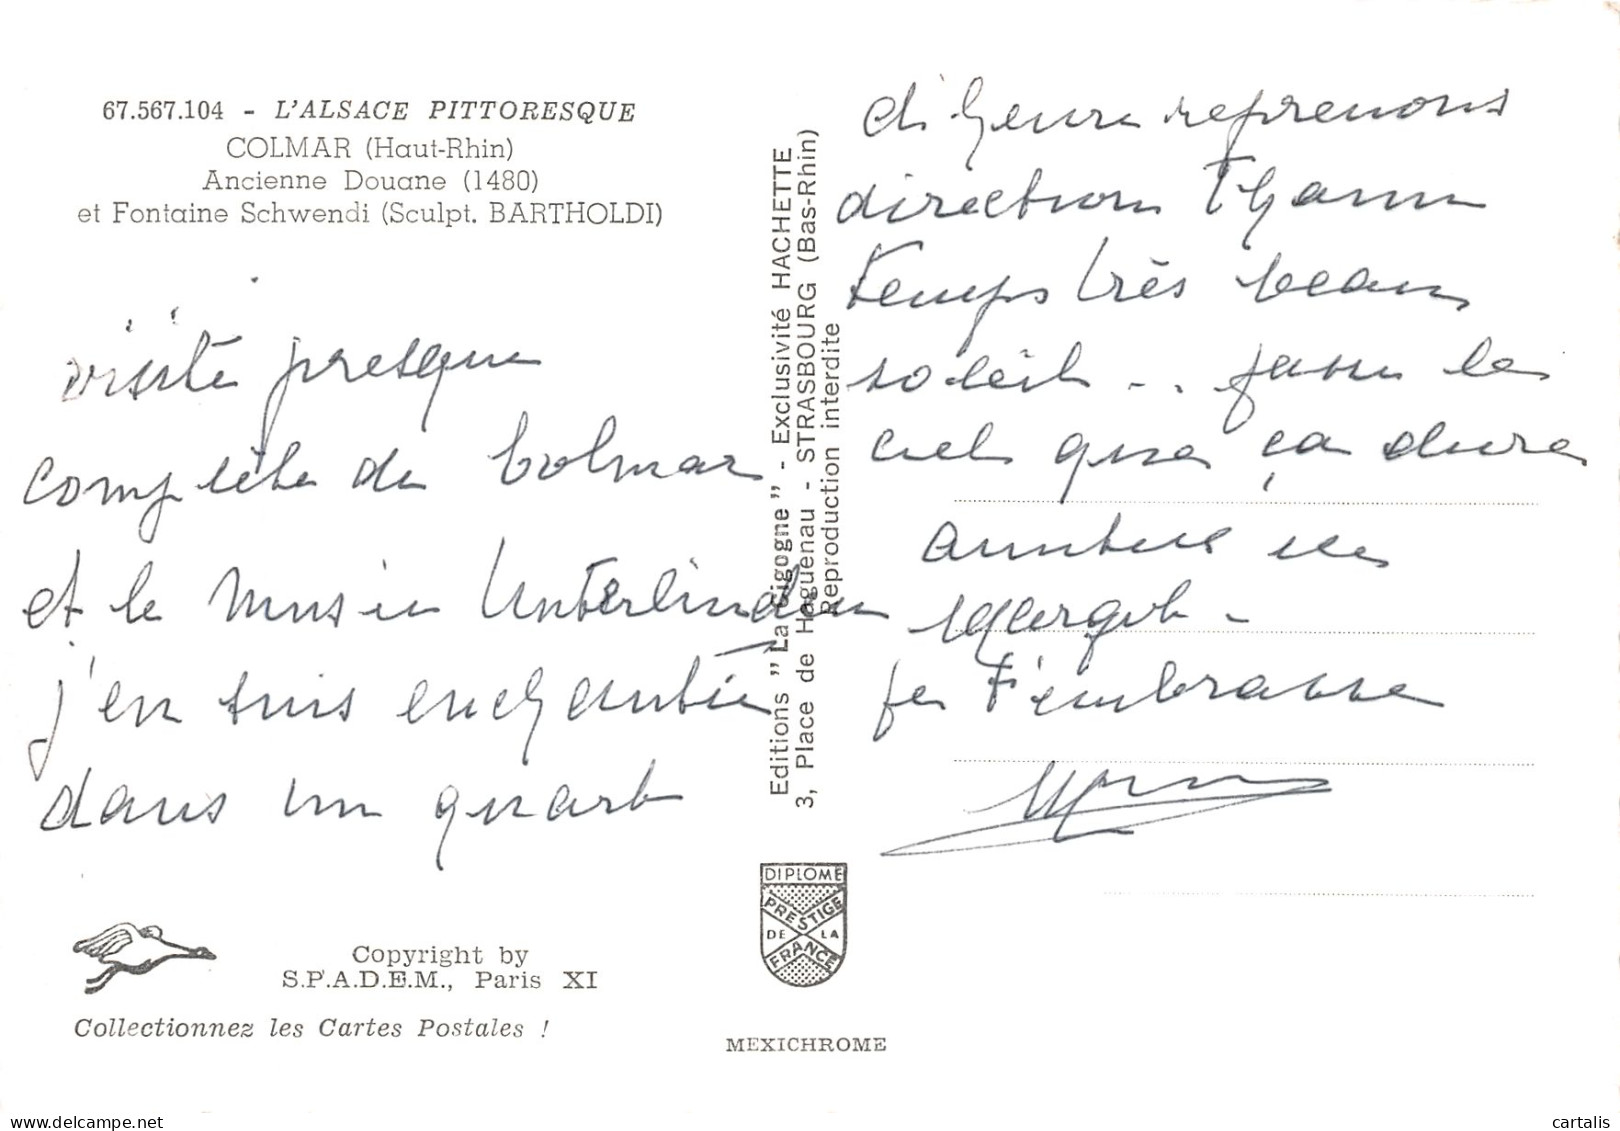 67.567.104 - L'ALSACE PITTORESQUE
COLMAR (Haut-Rhin)
Ancienne Douane (1480)
et Fontaine Schwendi (Sculpt. BARTHOLDI)
visite presque
complète de Colmar
et le musée Unterlinden
j'en suis enchantée
dans un quart
Copyright by
S.P.A.D.E.M., Paris XI
Collectionnez les Cartes Postales !
Editions "La Cigogne" - Exclusivité HACHETTE
3, Place de Haguenau - STRASBOURG (Bas-Rhin)
Reproduction interdite
DIPLOME
PRESTIGE
DE LA
FRANCE
MEXICHROME
d'heure reprenons
direction Thann
temps très beau
soleil - . . fasse le
ciel que ça dure
je t'embrasse
cartalis | delcampe.net